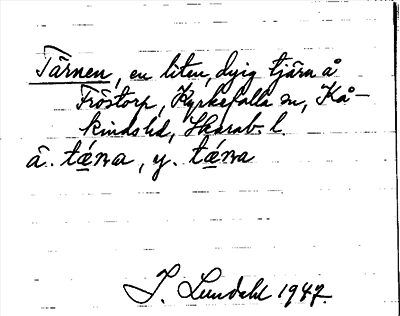 Tärnen, en liten, dyig tjärn å
Fröstorp, Kyrkefalla sn, Kå-
kinds hd, Skarab. l.
ä. tǽna, y. tǽna
I. Lundahl 1947.